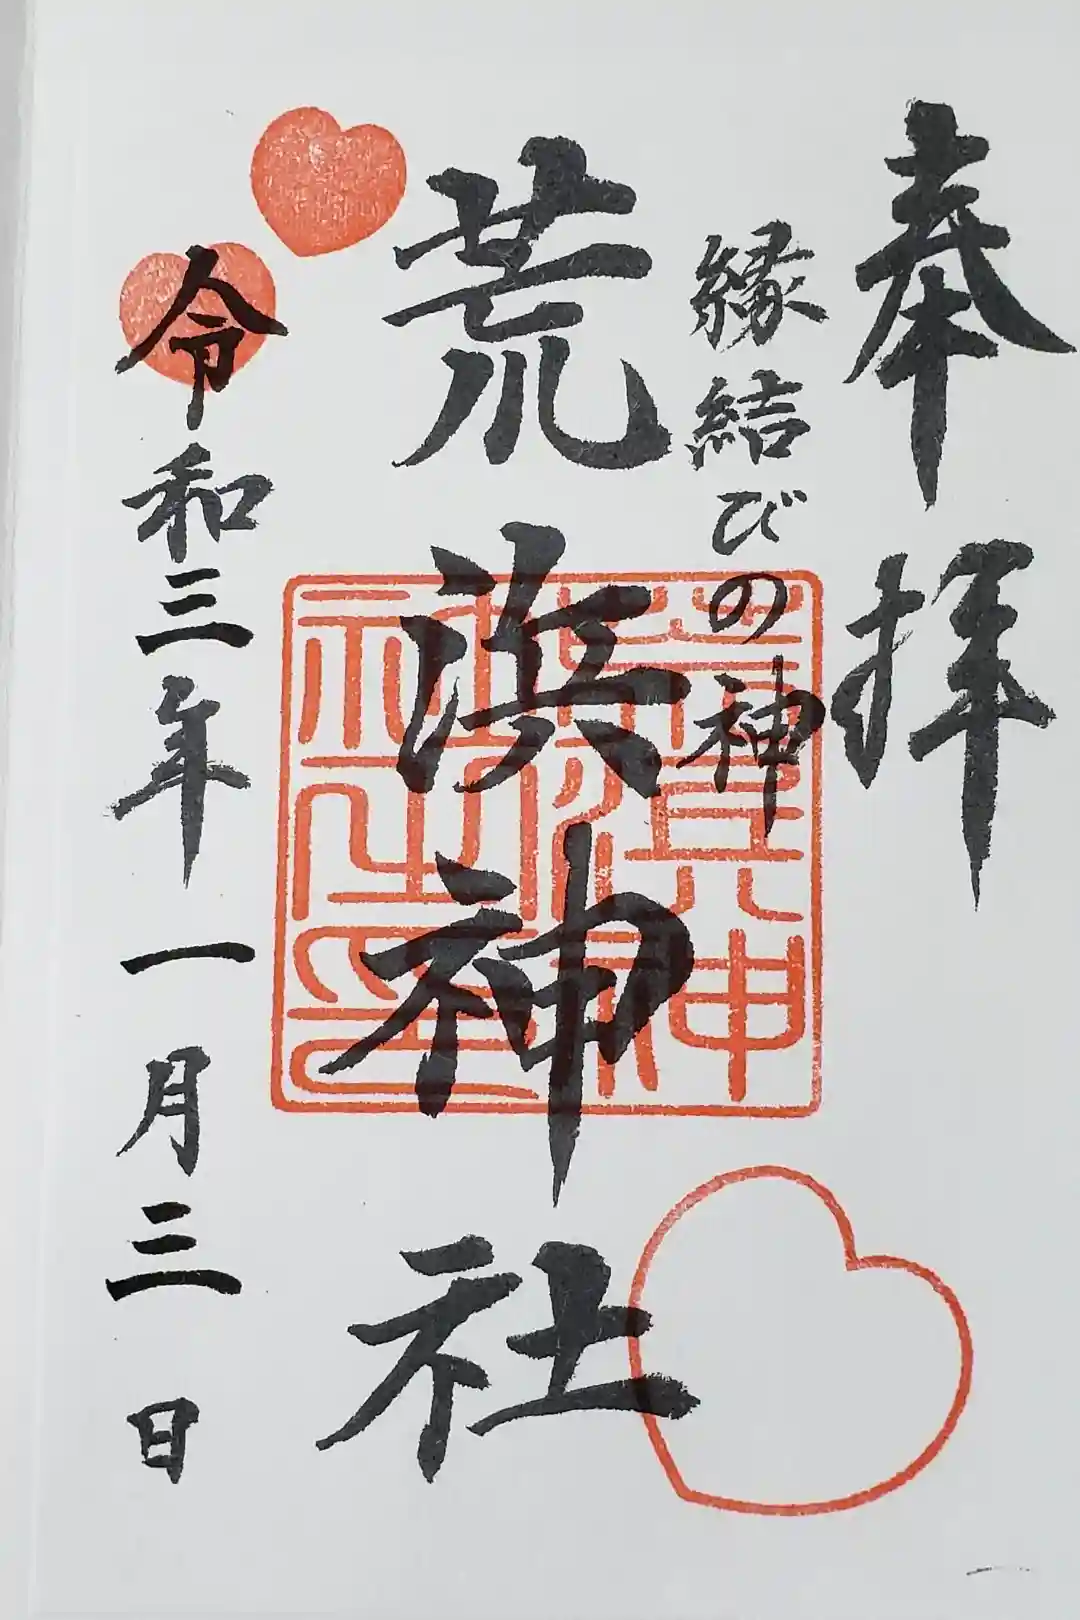 奉拝
縁結びの神
荒浜神社
令和三年一月三日
荒浜神
社之印